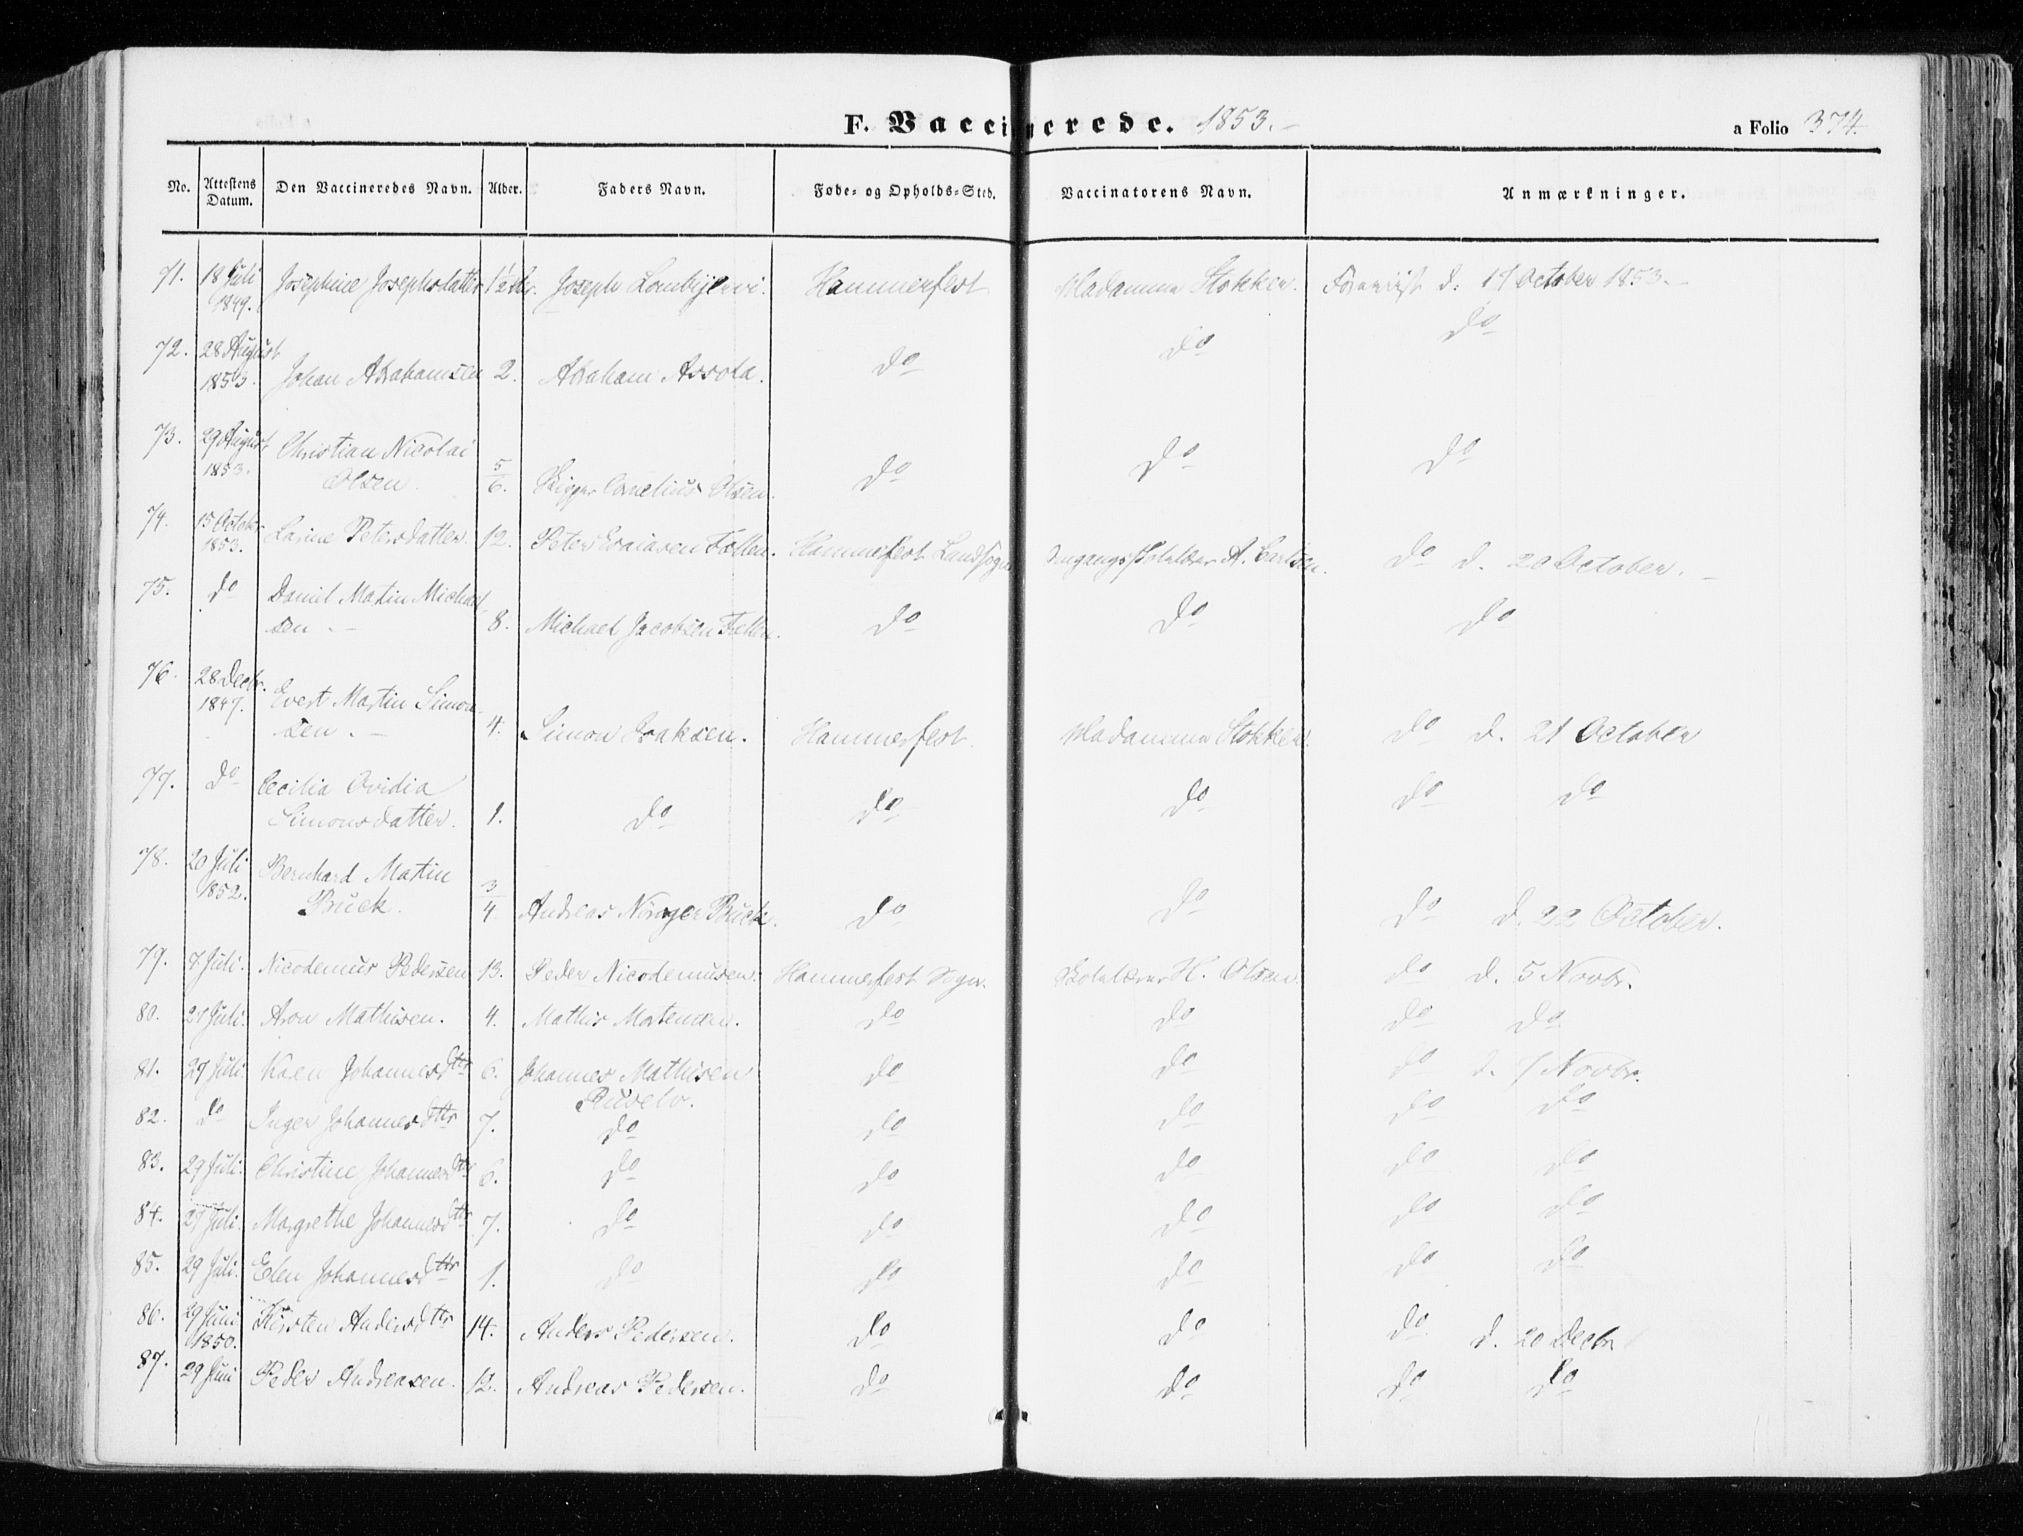 F. Vaccinerede. 1853.–
a Folio 374.
No. Attestens Datum. Den Vaccineredes Navn. Alder. Faders Navn. Føde- og Opholds-Sted. Vaccinatorens Navn. Anmærkninger.
71. 18 Juli 1849. Josephine Josephsdatter 1½ Joseph Hammerfest Madamme Stokken. d: 17 October 1853.–
72. 28 August 1853. Johan Abrahamsen 2. Abraham do do do
73. 29 August 1853. Christian Nicolai Olsen. 5/6. Skipper Cornelius Olsen. do do do
74. 15 Octobr 1853. Larine Petersdatter. 12. Peter Esaiasen Hammerfest Landsogn Omgangsskolelærer A. Carlsen. do d. 20 October. –
75. do Daniel Matin Michaelsen. – 8. Michael Jacobsen do do do
76. 28 Decbr. 1849. Evert Martin Simonsen. – 4. Simon Isaksen. Hammerfest. Madamme Stokken. do d. 21 October
77. do Cecilia Ovidia Simonsdatter. 1. do do do do do
78. 20 Juli 1852. Bernhard Matin Buck. 3/4. Andreas Buck. do do do d. 22 October.
79. 7 Juli. Nicodemus Pedersen 13. Peder Nicodemusen. Hammerfest Sogn. Skolelærer H. Olsen. do d. 5 Novbr.
80. 27 Juli. Aron Mathisen. 4. Mathis Mortensen. do do do do
81. 27 Juli Karen Johannesdttr 6. Johannes Mathisen do do do d. 7 Novbr.
82. do Inger Johannesdttr 7. do do do do do
83. 29 Juli. Christine Johannesdttr 6. do do do do do
84. 27 Juli. Margrethe Johannesdttr 7. do do do do do
85. 29 Juli. Elen Johannesdttr 1. do do do do do
86. 29 Juni 1850. Kirsten Andersdttr 14. Anders Pedersen. do do do d. 20 Decbr
87. 29 Juni Peder Andreasen. 12. Andreas Pedersen. do do do do